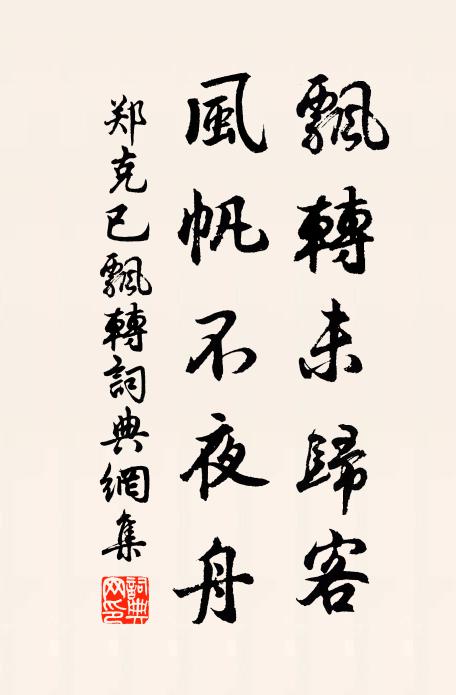 飄轉未歸客
風帆不夜舟
郑克已飄轉詞典網集
詞典网印